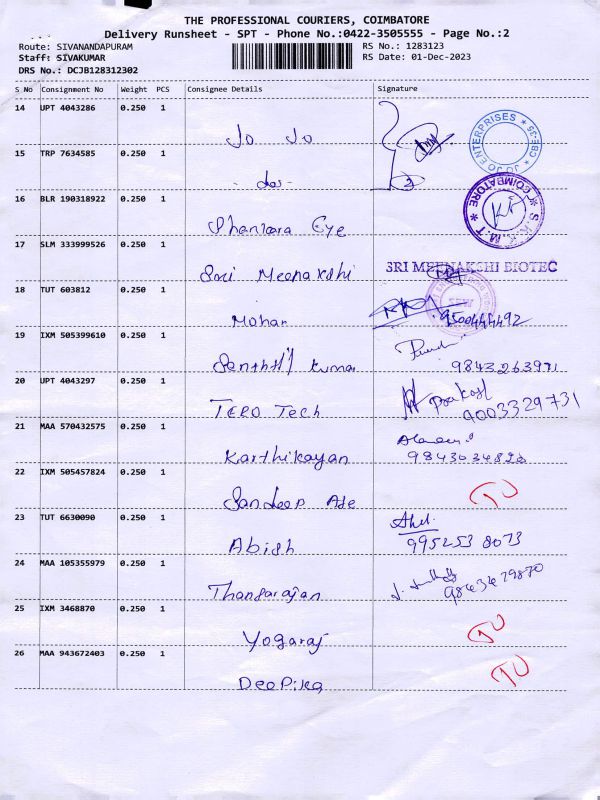 THE PROFESSIONAL COURIERS, COIMBATORE
Delivery Runsheet - SPT - Phone No.:0422-3505555 - Page No.:2
Route: SIVANANDAPURAM RS No.: 1283123
Staff: SIVAKUMAR RS Date: 01-Dec-2023
DRS No.: DCJB128312302
S No Consignment No Weight PCS Consignee Details Signature
14 UPT 4043286 0.250 1
Jo Jo
JO JO ENTERPRISES * CBE-35 *
15 TRP 7634585 0.250 1
do-
16 BLR 190318922 0.250 1
Shankara Eye
S.K.K.M.T * COIMBATORE *
17 SLM 333999526 0.250 1
Sri Meenakshi
SRI MEENAKSHI BIOTEC
18 TUT 603812 0.250 1
Mohan 9500444492
19 IXM 505399610 0.250 1
Senthil kumar 9843263971
20 UPT 4043297 0.250 1
TERO Tech Prakash 9003329731
21 MAA 570432575 0.250 1
Karthikayan
22 IXM 505457824 0.250 1
Sandeep Ade
23 TUT 6630090 0.250 1
Abish 9952538073
24 MAA 105355979 0.250 1
Thangarajan 9843479870
25 IXM 3468870 0.250 1
Yogaraj
26 MAA 943672403 0.250 1
Deepika